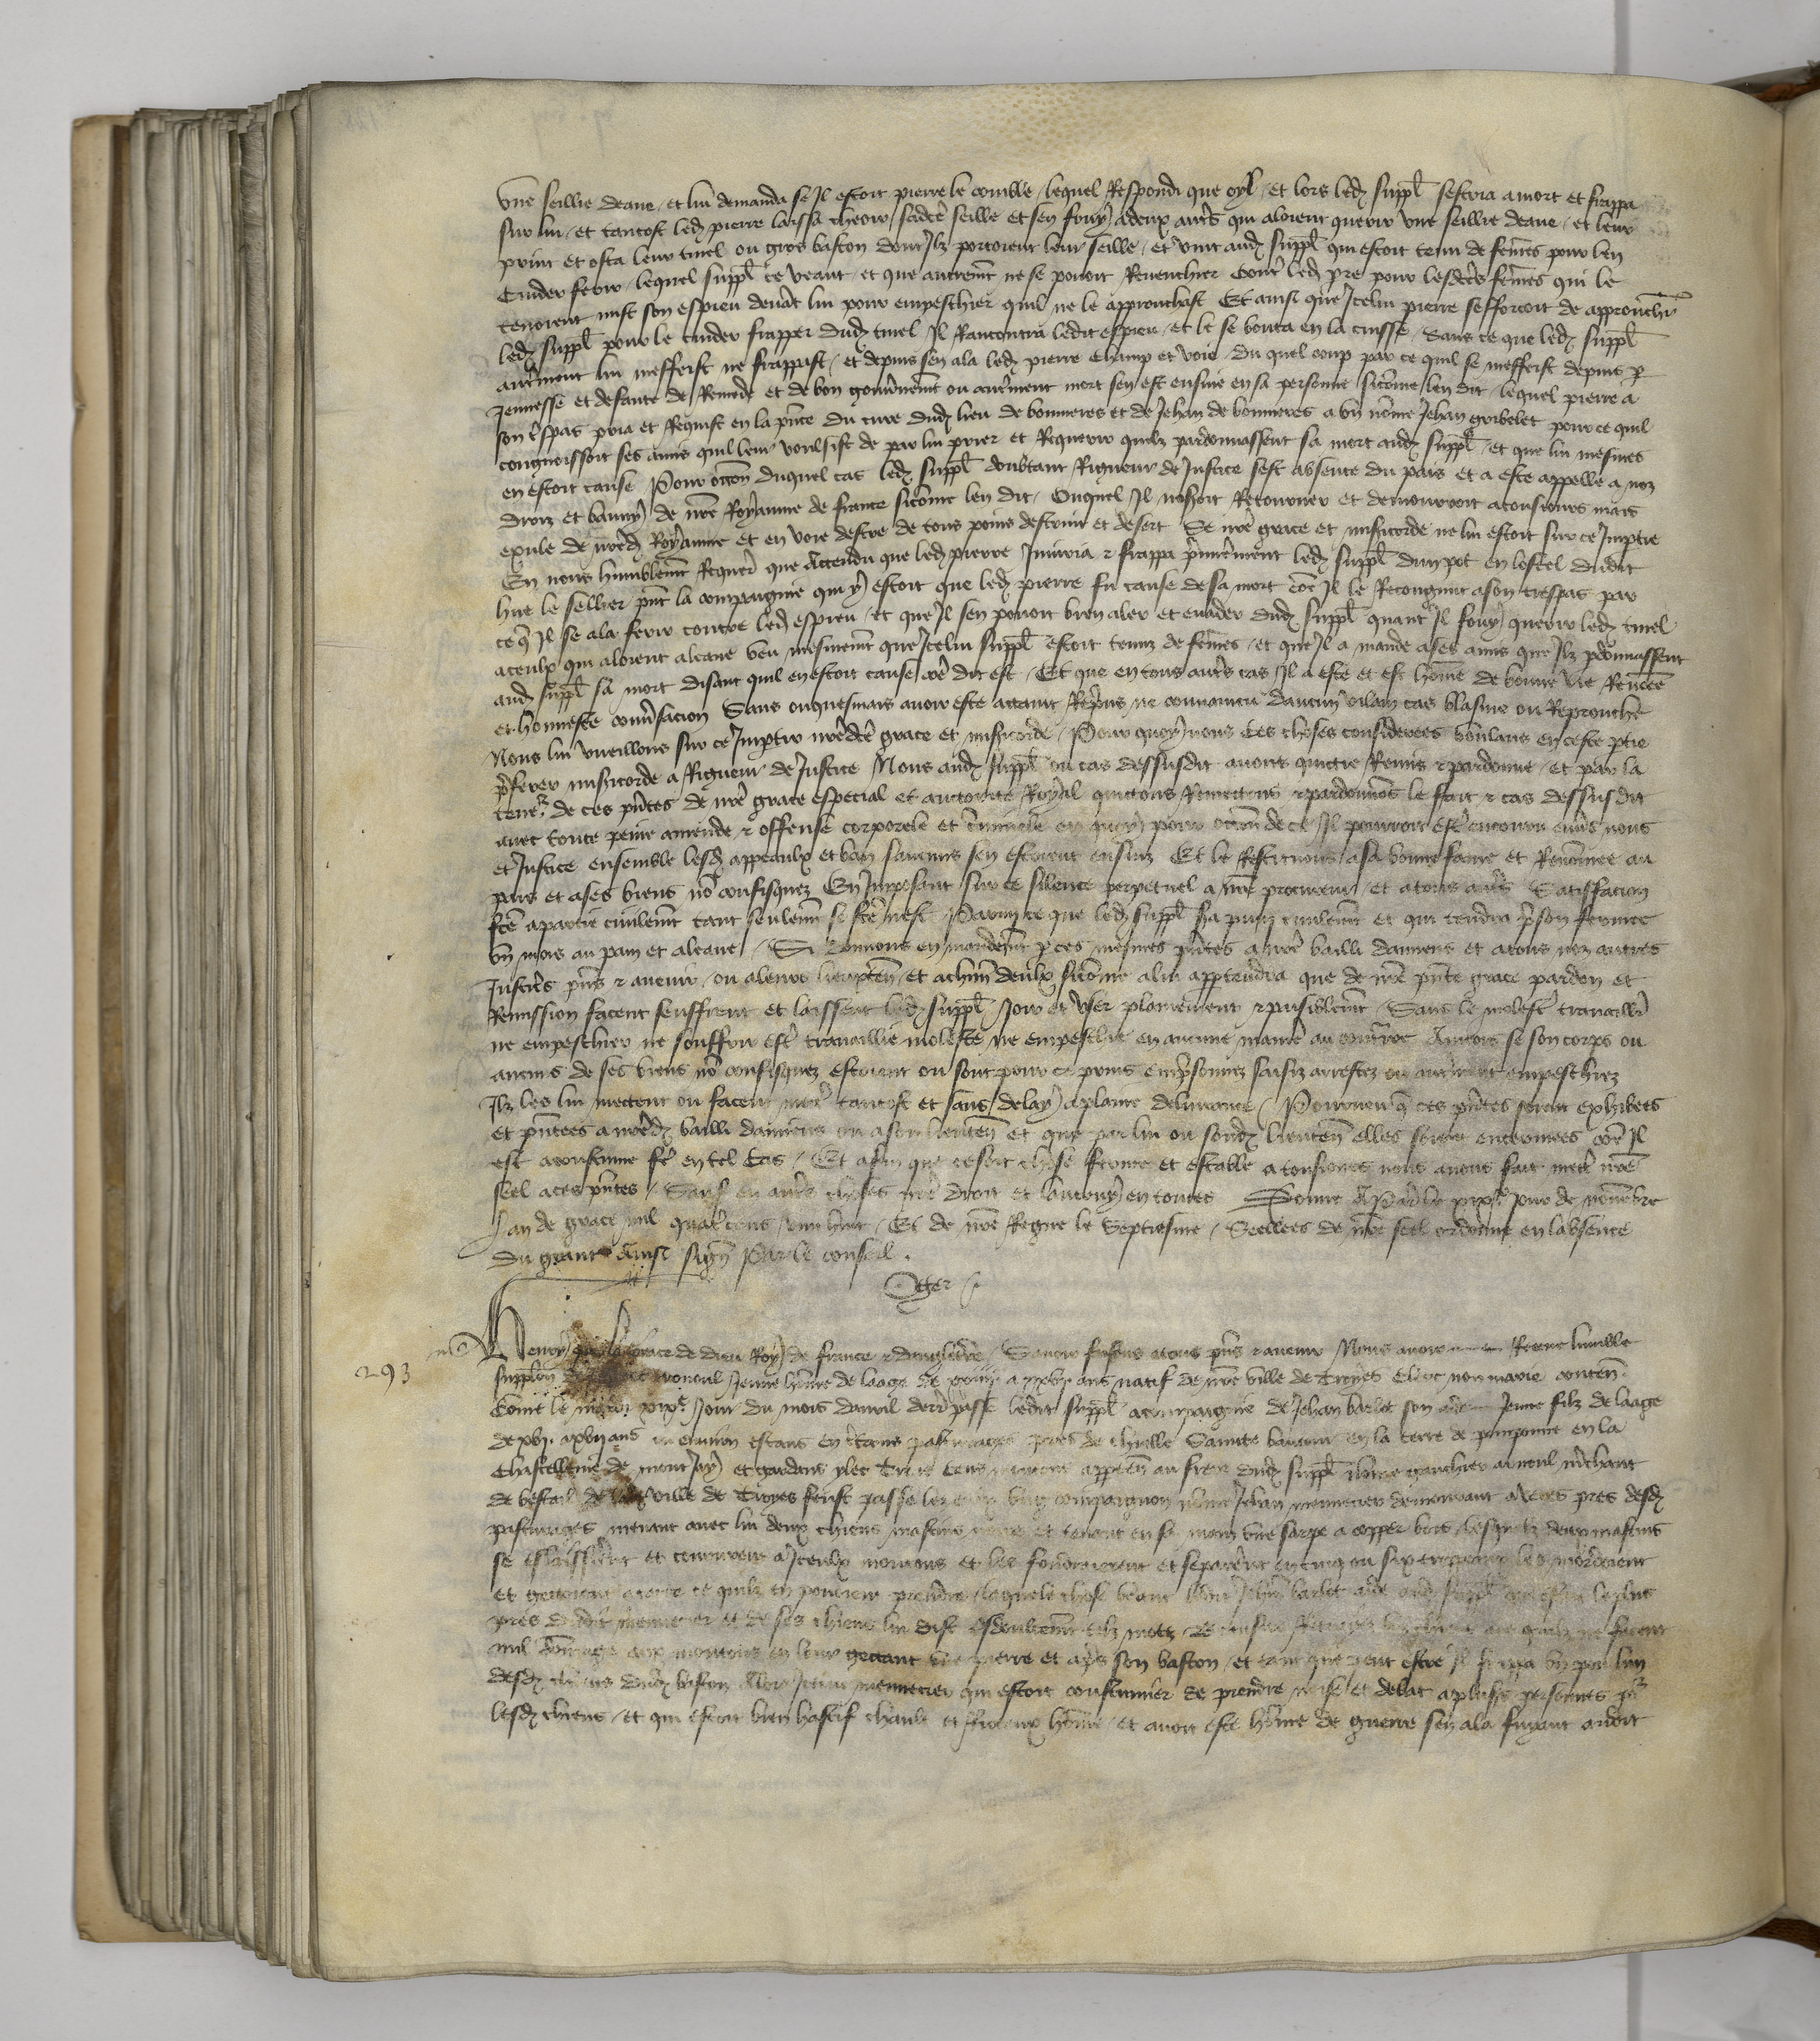 une seillie deaue et lui demanda se Il estoit pierre le comble / lequel Respondi que oyl / et lors led suppl sescria a mort et frappa
sur lui / et tantost led pierre laissa cheoir sadcte seille et sen fouy a deux autres qui aloient querir une seillie deaue / et leur
print et osta leur tinel ou gros baston dont Ilz portoient leur seille / et vint aud suppl qui estoit tenu de femes pour len
Cuider ferir / lequel suppl ce veant et que autremt ne se povoit Revenchier contre led pre pour lesdctes femes qui le
tenoient mist son espieu devat lui pour empeschier quil ne le approuchast Et ainsi que Icelui pierre sefforcoit de approuchr
led suppl pour le cuider frapper dud tinel Il Rancontra ledit espieu / et le se bouta en la cuisse / Sans ce que led suppl
autrement lui mefferist ne frappast / et depuis sen ala led pierre Champ et voie / du quel coup par ce quil se mefferist depuis p
Jeunesse et defaute de Remede et de bon gouvernemt ou autrement mort sen est ensuie en sa personne sicome len dit / lequel pierre a
son trespas pria et Requist en la pnce du cure dud lieu de bonnieres et de Jehan de bonnieres a un nome Jehan gribelet pour ce quil
congnoissoit ses amis quil leur voulsist de par lui prier et Requerir quilz pardonnassent sa mort aud suppl / et que lui mesmes
en estoit cause Pour occon duquel cas led suppl doubtant Rigueur de Justice sest absente du pais et a este appelle a noz
droiz et banny de nre Royaume de france sicome len dit / Ouquel Il noseroit Retourner et demourroit a tousiours mais
exule de nred Royaume et en voie destre de tous poins destruit et desert Se nre grace et misicorde ne lui estoit sur ce Imptie
En nous humblemt Requert que Attendu que led pierre Iniuria & frappa primierment led suppl dun pot en lostel dudit
hue le sellier pnt la compaignie qui y estoit que led pierre fu cause de sa mort coe Il le Recongnut a son trespas par
ce q Il se ala ferir contre led espieu / et que Il sen povoit bien aler et evader dud suppl quant Il fouy querir led tinel
aceulx qui aloient aleaue veu mesmemt que Icelui suppl estoit tenuz de femes / et que Il a mande a ses amis que Ilz pdonnassent
aud suppl sa mort disant quil en estoit cause coe dit est / Et que en tous autrs cas Il a este et est home de bonne vie Renomee
et honneste conversacion Sans onquesmais avoir este attaint Reprins ne convaincu daucun vilain cas blasme ou Reprouche
Nous lui vueillons sur ce Imptir nredcte grace et misicorde / Pour quoy nous ces choses considerees voulans en ceste ptie
preferer misicorde a Rigueur de Justice Nous aud suppl ou cas dessusdit avons quicte Remis & pardonne / et par la
teneur de ces pntes de nre grace especial et auctorite Royal quictons Remettons & pardonnons le fait & cas dessusdit
avec toute peine amende & offense corporele et criminele en quoy pour occon de ce Il pourroit estre encouru envers nous
et Justice ensemble lesd appeaulx et ban saucuns sen estoient ensuiz Et le Restituons a sa bonne fame et Renomee au
pais et a ses biens no confisquez En Imposant sur ce silence perpetuel a nre procureur et a tous autrs Satisfacion
fcte a partie civilemt tant seulemt se fcte nest Parmi ce que led suppl sera puni civilemt et qui tendra prison fermee
un mois au pain et aleaue / Si donnons en mandemt p ces mesmes pntes a nre bailli damiens et atous noz autres
Justicrs pns & avenir / ou a leurs lieuxten et achun deulx sicome a lui appartendra que de nre pnte grace pardon et
Remission facent seuffrent et laissent led suppl Joir et user plainement & paisiblemt / Sans le molester travaillr
ne empeschier ne souffrir estr travaillie moleste ne empeschie en aucune maniere au contraire Aincois se son corps ou
aucuns de ses biens no confisquez estoient ou sont pour ce prins emprisonnez saisiz arrestez ou autrement empeschiez
Ilz les lui mectent ou facent mectre tantost et sans delay a plaine delivrance / Pourveu q ces pntes seront exhibees
et pntees a nred bailli damiens ou a son lieuten et que par lui ou sond lieuten elles soient enterinees coe Il
est acoustume fe en tel Cas / Et afin que ce soit chose ferme et estable a tousiours nous avons fait mectre nre
seel a ces pntes / Sauf en autrs choses nre droit et lautruy en toutes Donne A Paris le jour de novembre
Lan de grace mil quatrcens vint huit / Et de nre Regne le Septiesme / Seellees de nre seel ordonne en labsence
du grant Ainsi signe Par le conseil .
Oger
293
Henry par la grace de dieu Roy de france & dangleterre / Savoir faisons atous pns & avenir Nous avoir Receue lumble
supplon Jeune home de laage de xxiiij a xxv ans natif de nre ville de Troyes Clerc non marie conten
Come le jour du mois davril derr passe ledit suppl acompaignie de Jehan barlet son Jeune filz de laage
de xvj a xvij ans ou environ estans en certains pasturages pres de chielle Saincte en la terre de pomponne en la
Chastellenie de mont Jay et gardans moutons apparten au frere dud suppl nome gauchier arnoul mrchant
de bestail de lad ville de Troyes feust passe un compaignon nome Jehan mennecier demourant pres desd
pasturages menant avec lui deux chiens mastins et tenant en sa main une sarpe a copper bois lesquelz deux mastins
se eslaissierent et coururent a Iceulx moutons et les fouldroierent et separerent en cinq ou six les mordoient
et gectoient a terre ce quilz en povoient prendre / laquele chose veant Jehan barlet aud suppl le plus
pres dudit mennecier et de ses chiens lui dist telz motz chiens que quilz ne facent
nul domage aux moutons en leur gectant une pierre et apres son baston / et tant que peut estre Il frapa un pou lun
desd chiens dud baston Icelui mennecier qui estoit coustumier de prendre noise et debat a plusrs personnes pour
lesd chiens / et qui estoit bien hastif chault et home / et avoit este home de guerre sen ala fuyant audit